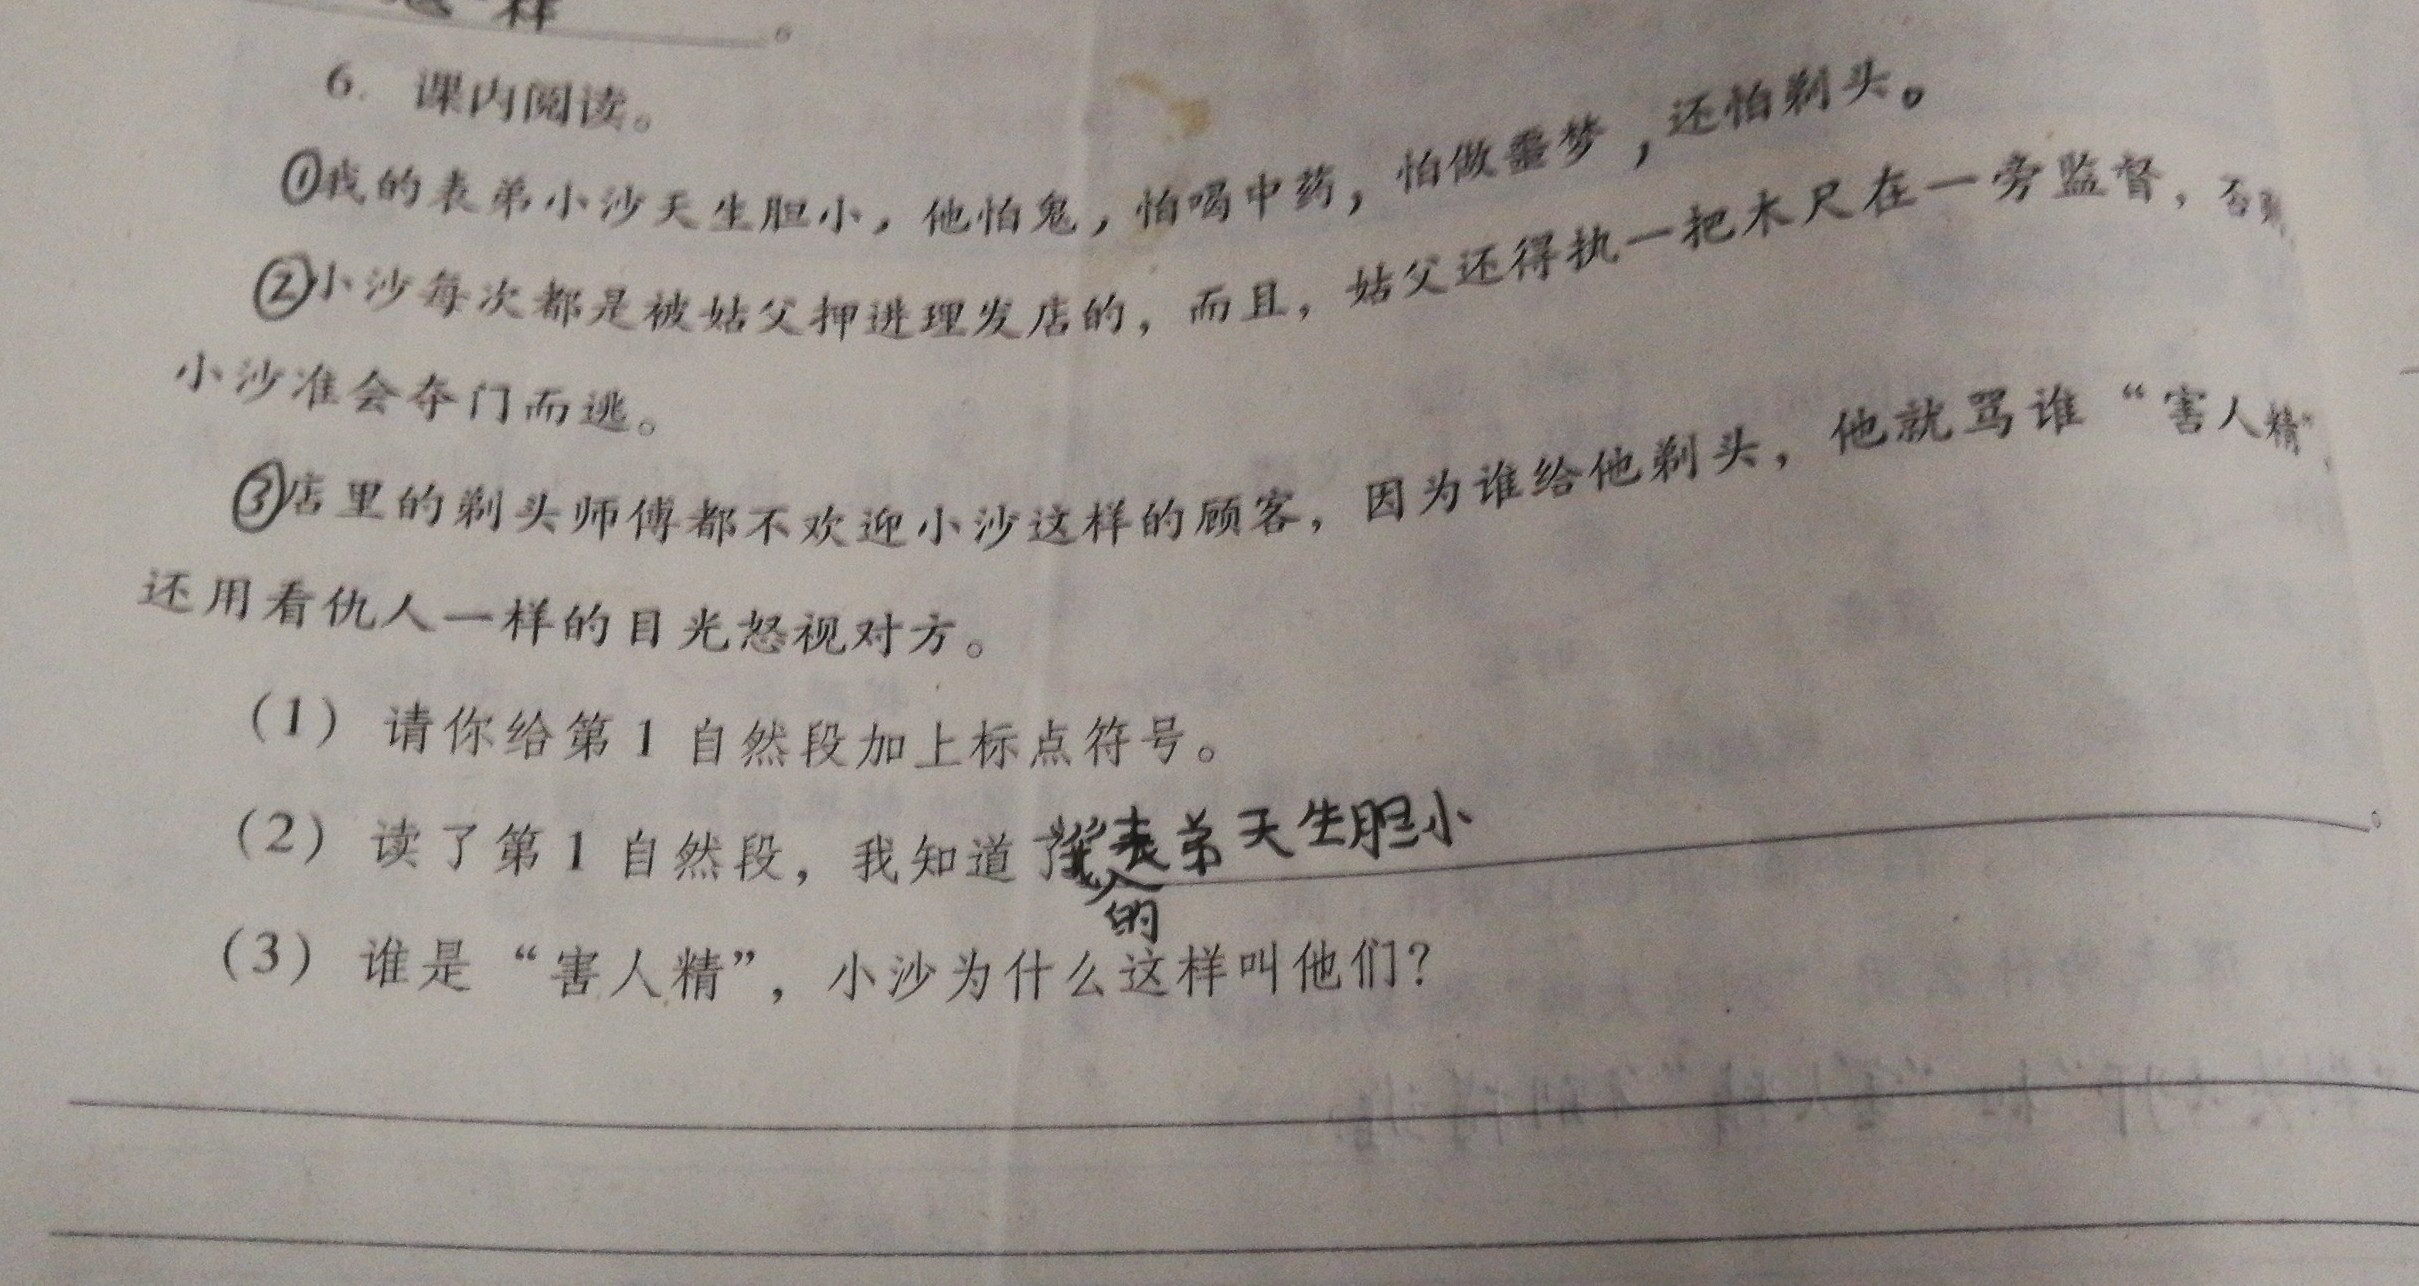 样
。
6. 课内阅读。
①我的表弟小沙天生胆小，他怕鬼，怕喝中药，怕做噩梦，还怕剃头。
②小沙每次都是被姑父押进理发店的，而且，姑父还得执一把木尺在一旁监督，否则
小沙准会夺门而逃。
③店里的剃头师傅都不欢迎小沙这样的顾客，因为谁给他剃头，他就骂谁“害人精”，
还用看仇人一样的目光怒视对方。
（1）请你给第1自然段加上标点符号。
（2）读了第1自然段，我知道了我的表弟天生胆小。
（3）谁是“害人精”，小沙为什么这样叫他们？